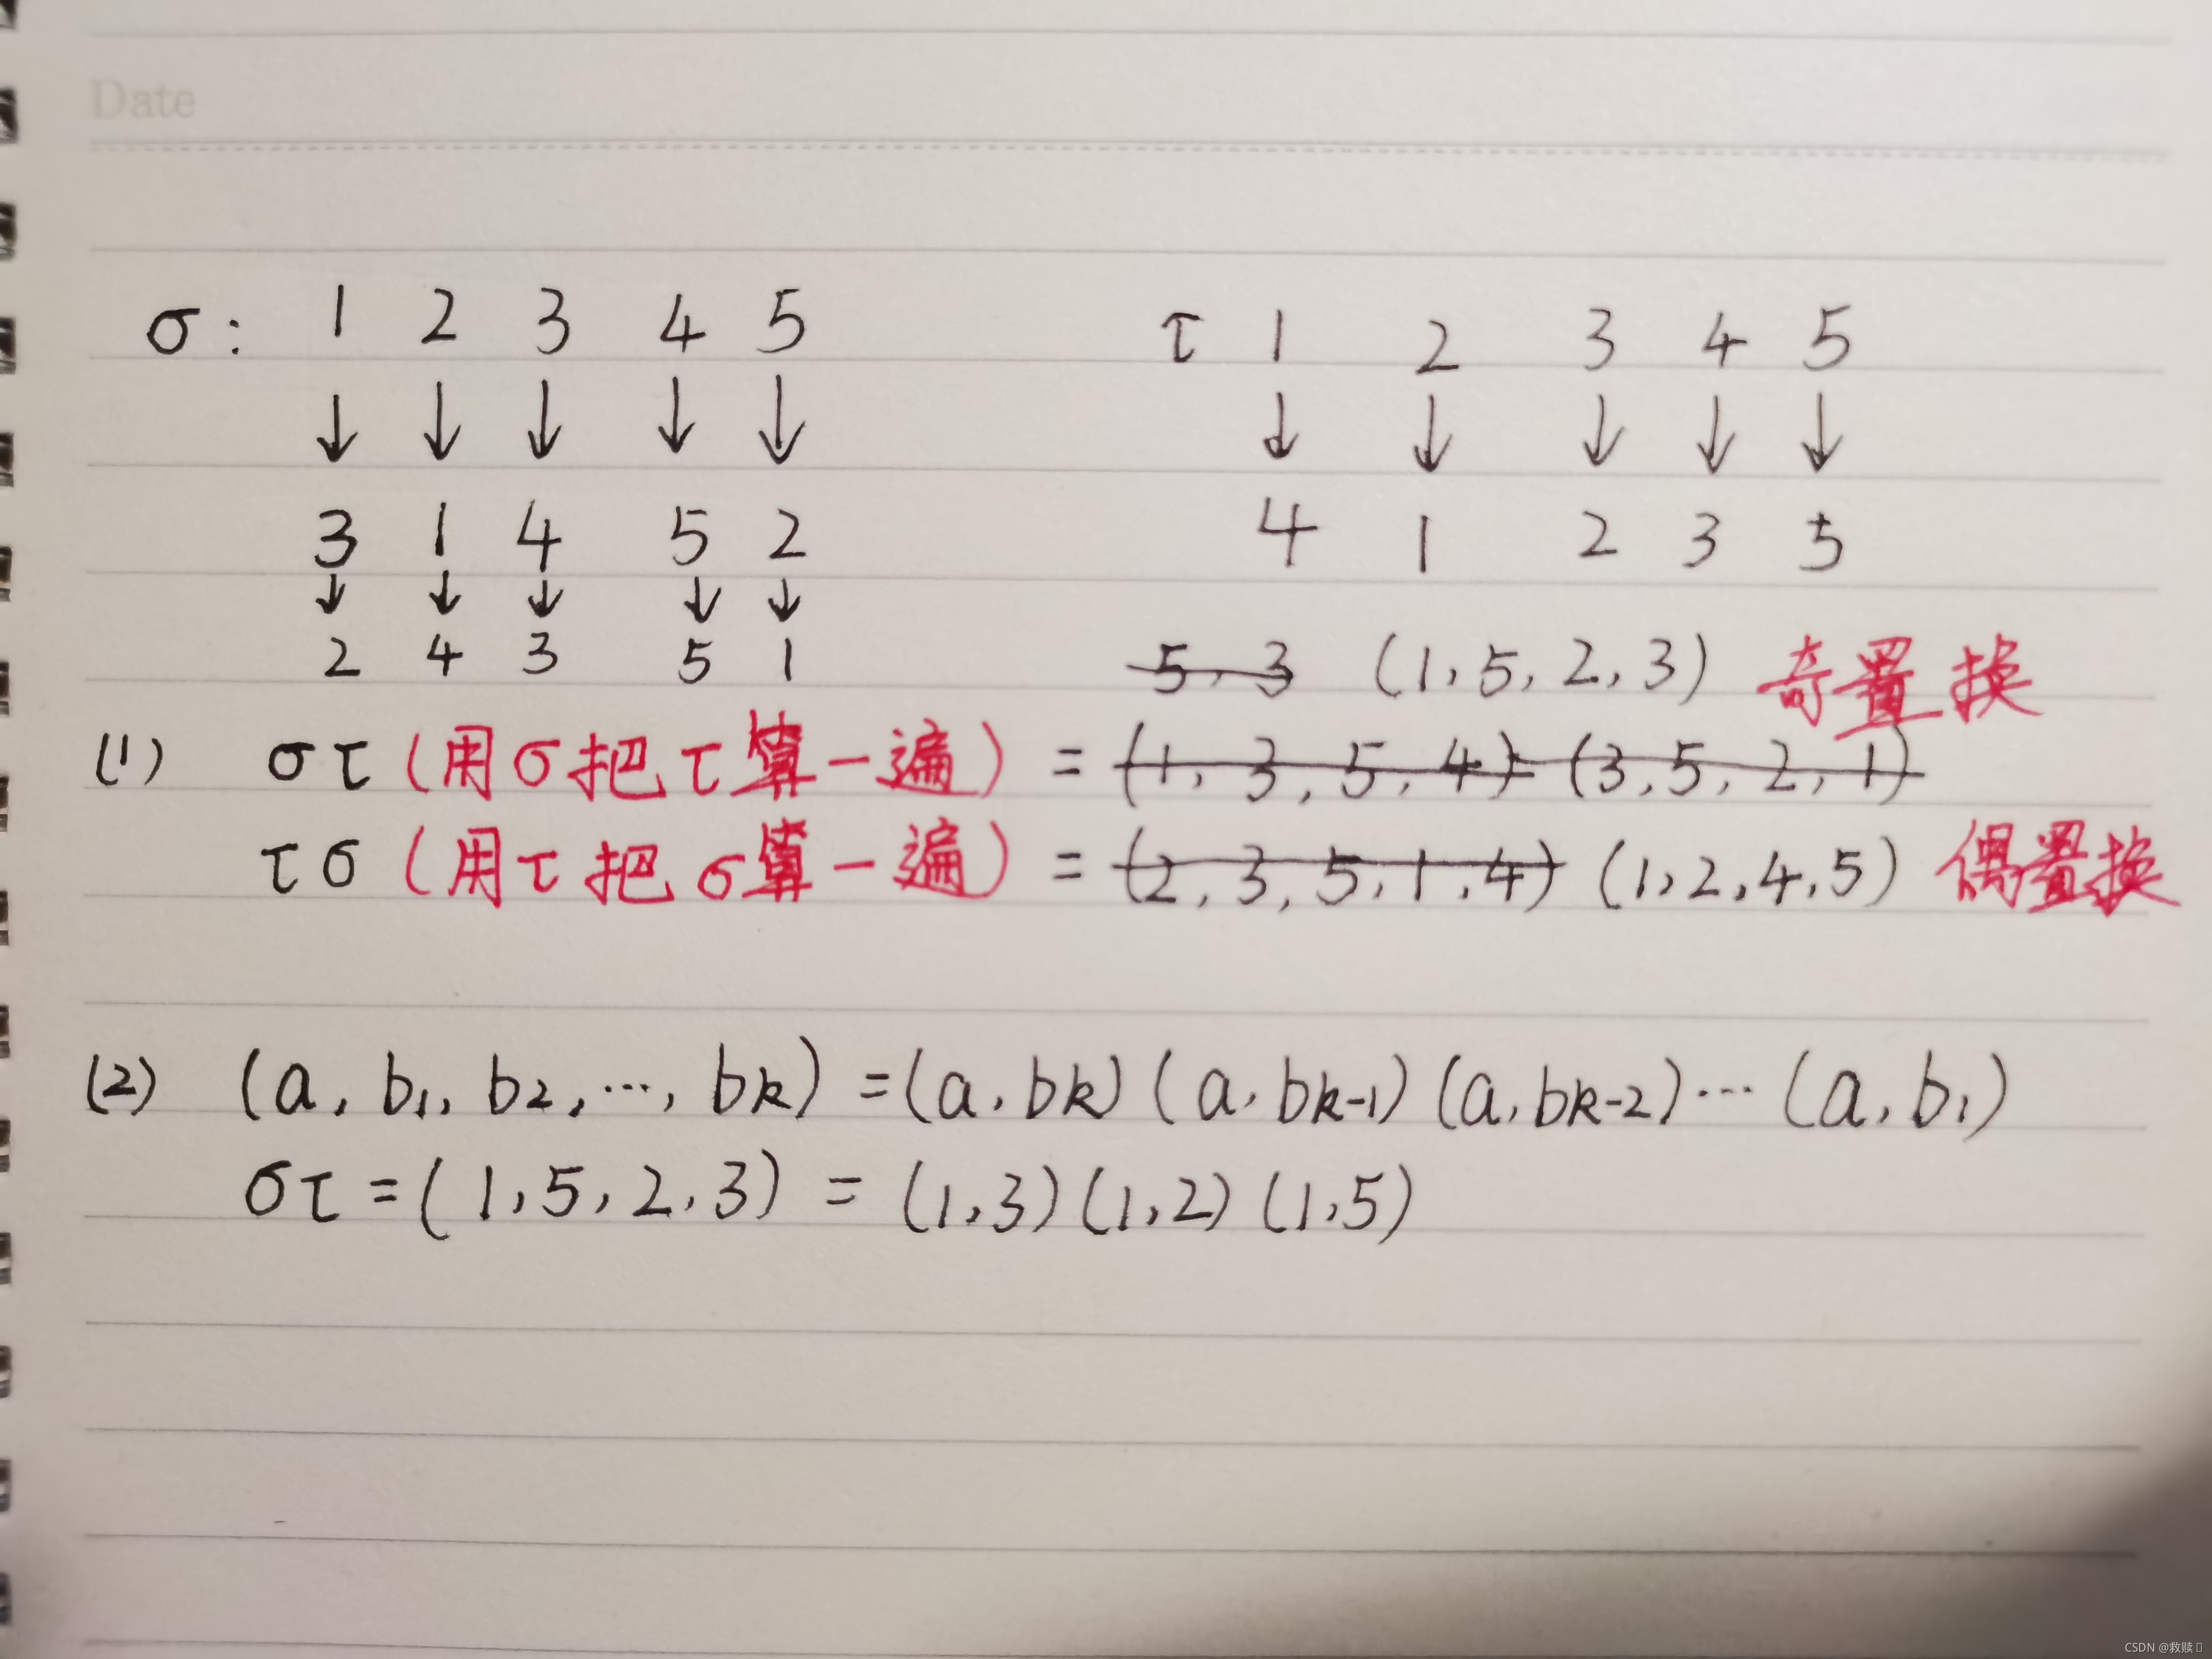 Date
σ: 1 2 3 4 5 τ 1 2 3 4 5
↓ ↓ ↓ ↓ ↓ ↓ ↓ ↓ ↓ ↓
3 1 4 5 2 4 1 2 3 5
↓ ↓ ↓ ↓ ↓
2 4 3 5 1 5, 3 (1,5,2,3) 奇置换
(1) στ (用σ把τ算一遍) = (1,3,5,4) = (3,5,2,1)
τσ (用τ把σ算一遍) = (2,3,5,1,4) (1,2,4,5) 偶置换
(2) (a, b1, b2, ..., bk) = (a, bk) (a, bk-1) (a, bk-2) ... (a, b1)
στ = (1,5,2,3) = (1,3) (1,2) (1,5)
CSDN @救赎